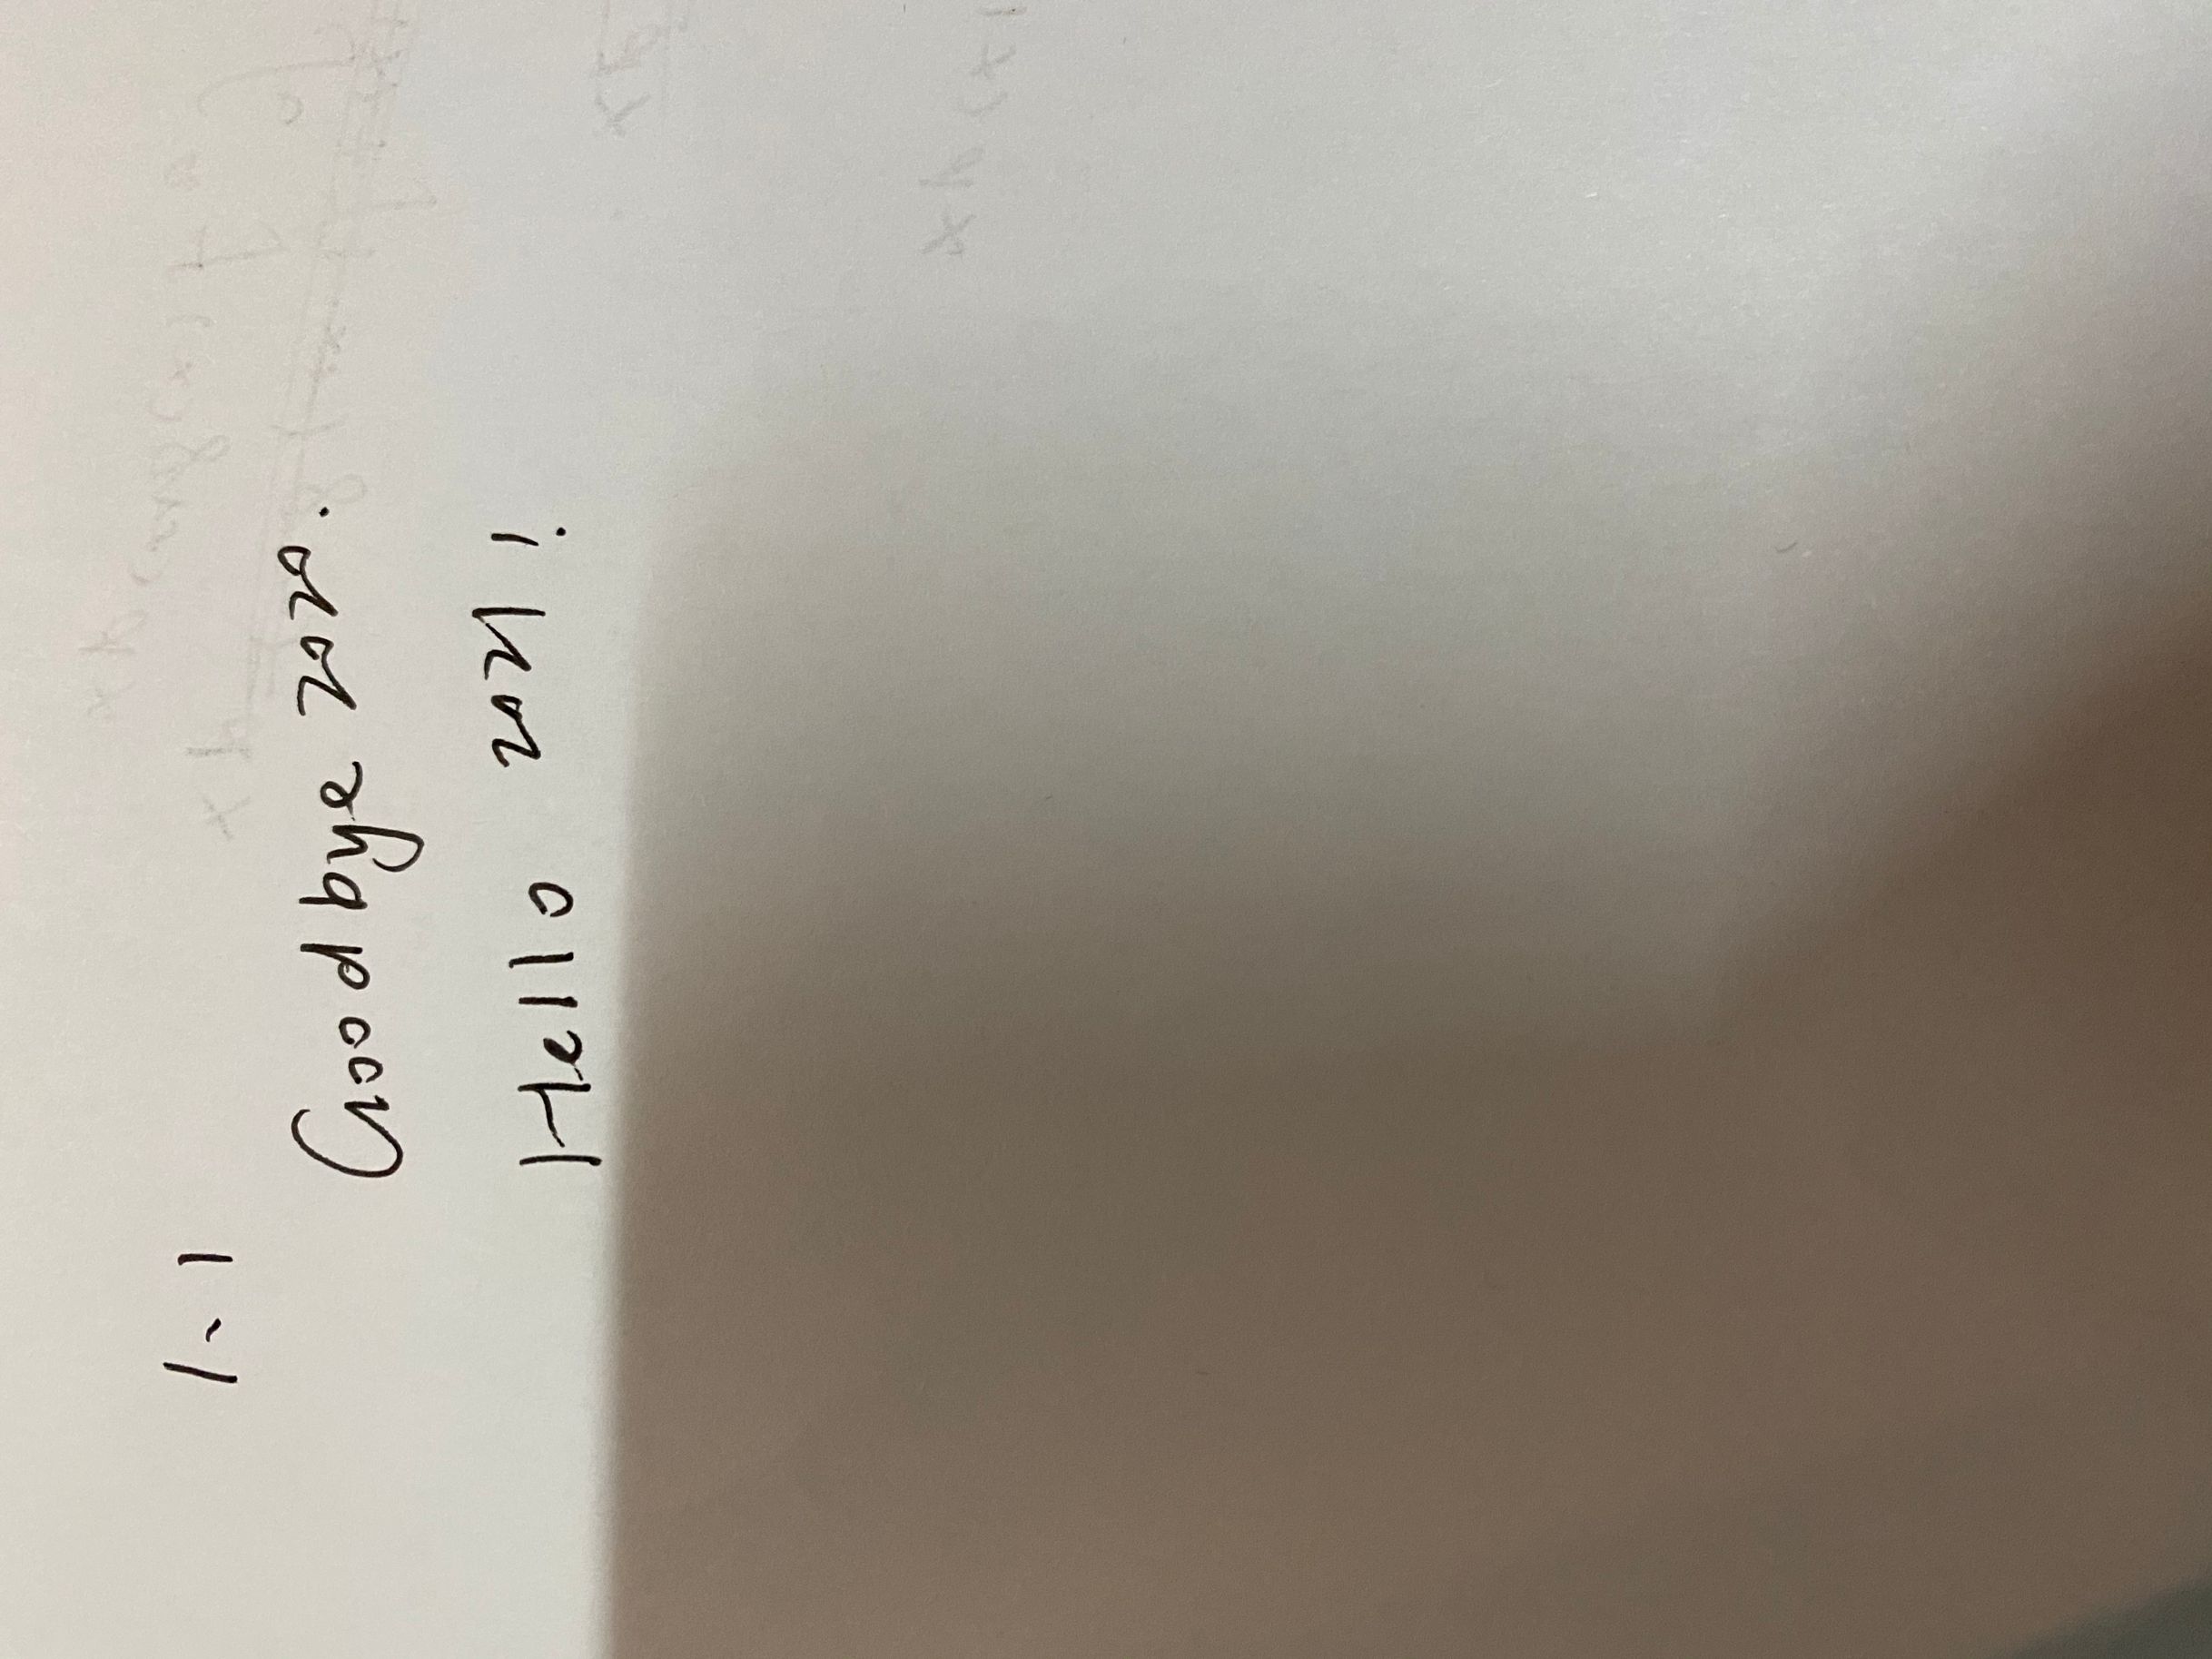 1、1
Goodbye 2020.
Hello 2021!